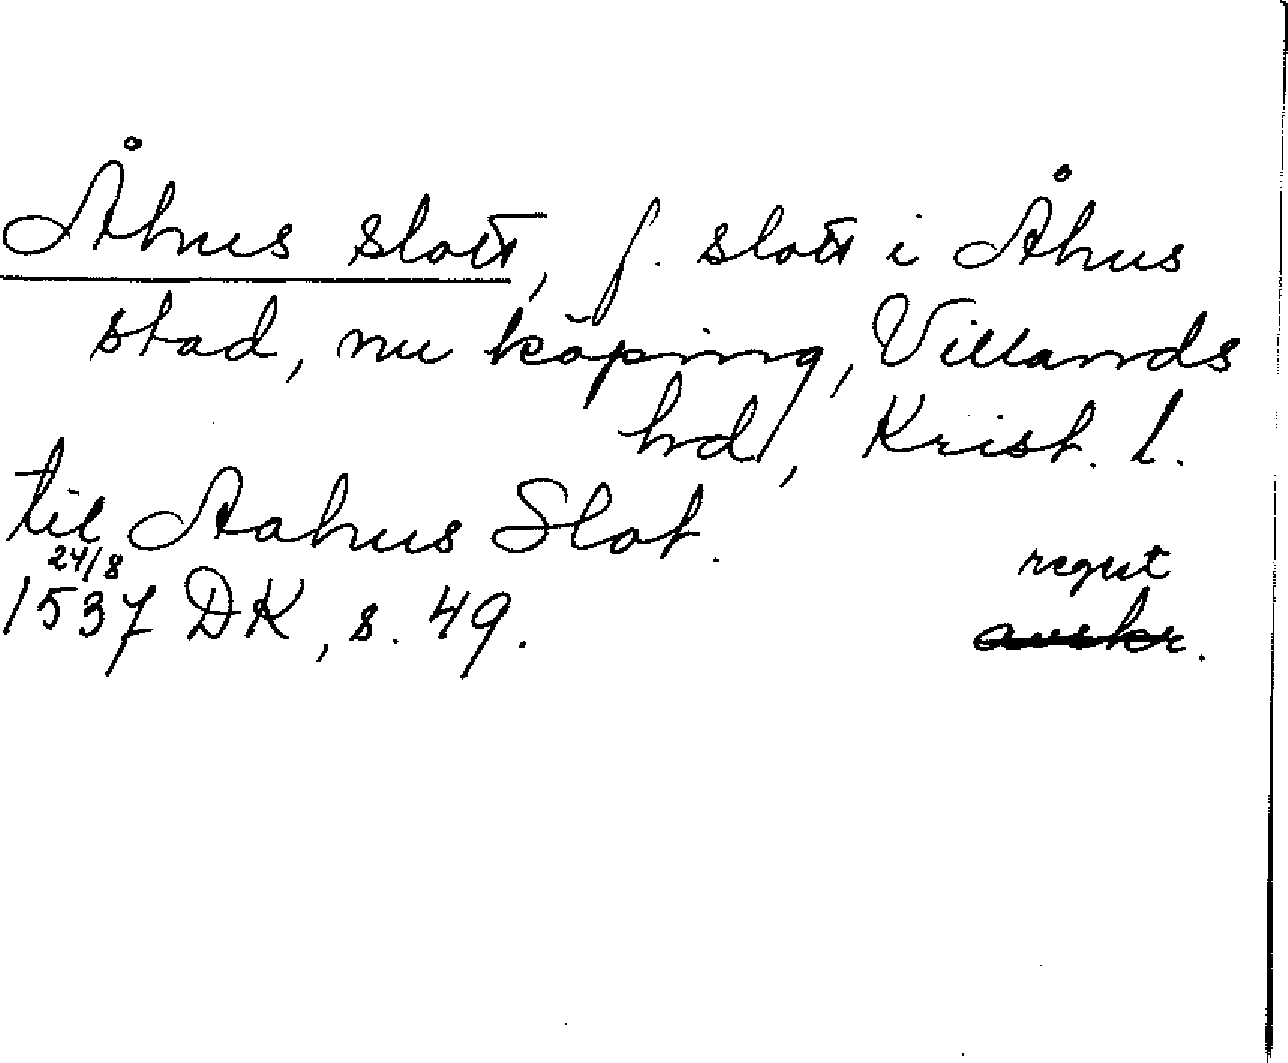 Åhus slott, f. slott i Åhus
stad, nu köping, Villands
hd, Krist. l.
til Aahus Slot.
24/8
1537 DK, s. 49.
regest
avskr.